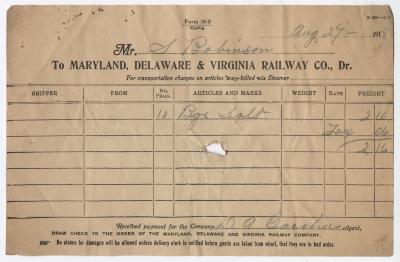 Form 19-S
Aug 27 191
Mr. S Robinson
To MARYLAND, DELAWARE & VIRGINIA RAILWAY CO., Dr.
For transportation charges on articles way-billed via Steamer
SHIPPER FROM No. PKGS. ARTICLES AND MARKS WEIGHT RATE FREIGHT
10 Bgs Salt 2 10
Tax 06
2 16
Received payment for the Company, Agent.
DRAW CHECK TO THE ORDER OF THE MARYLAND, DELAWARE AND VIRGINIA RAILWAY COMPANY.
No claims for damages will be allowed unless delivery clerk is notified before goods are taken from wharf, that they are in bad order.